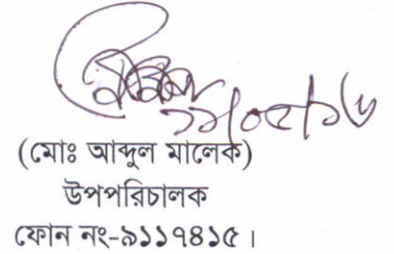 (মোঃ আব্দুল মালেক)
উপপরিচালক
ফোন নং-৯১১৭৪১৫।